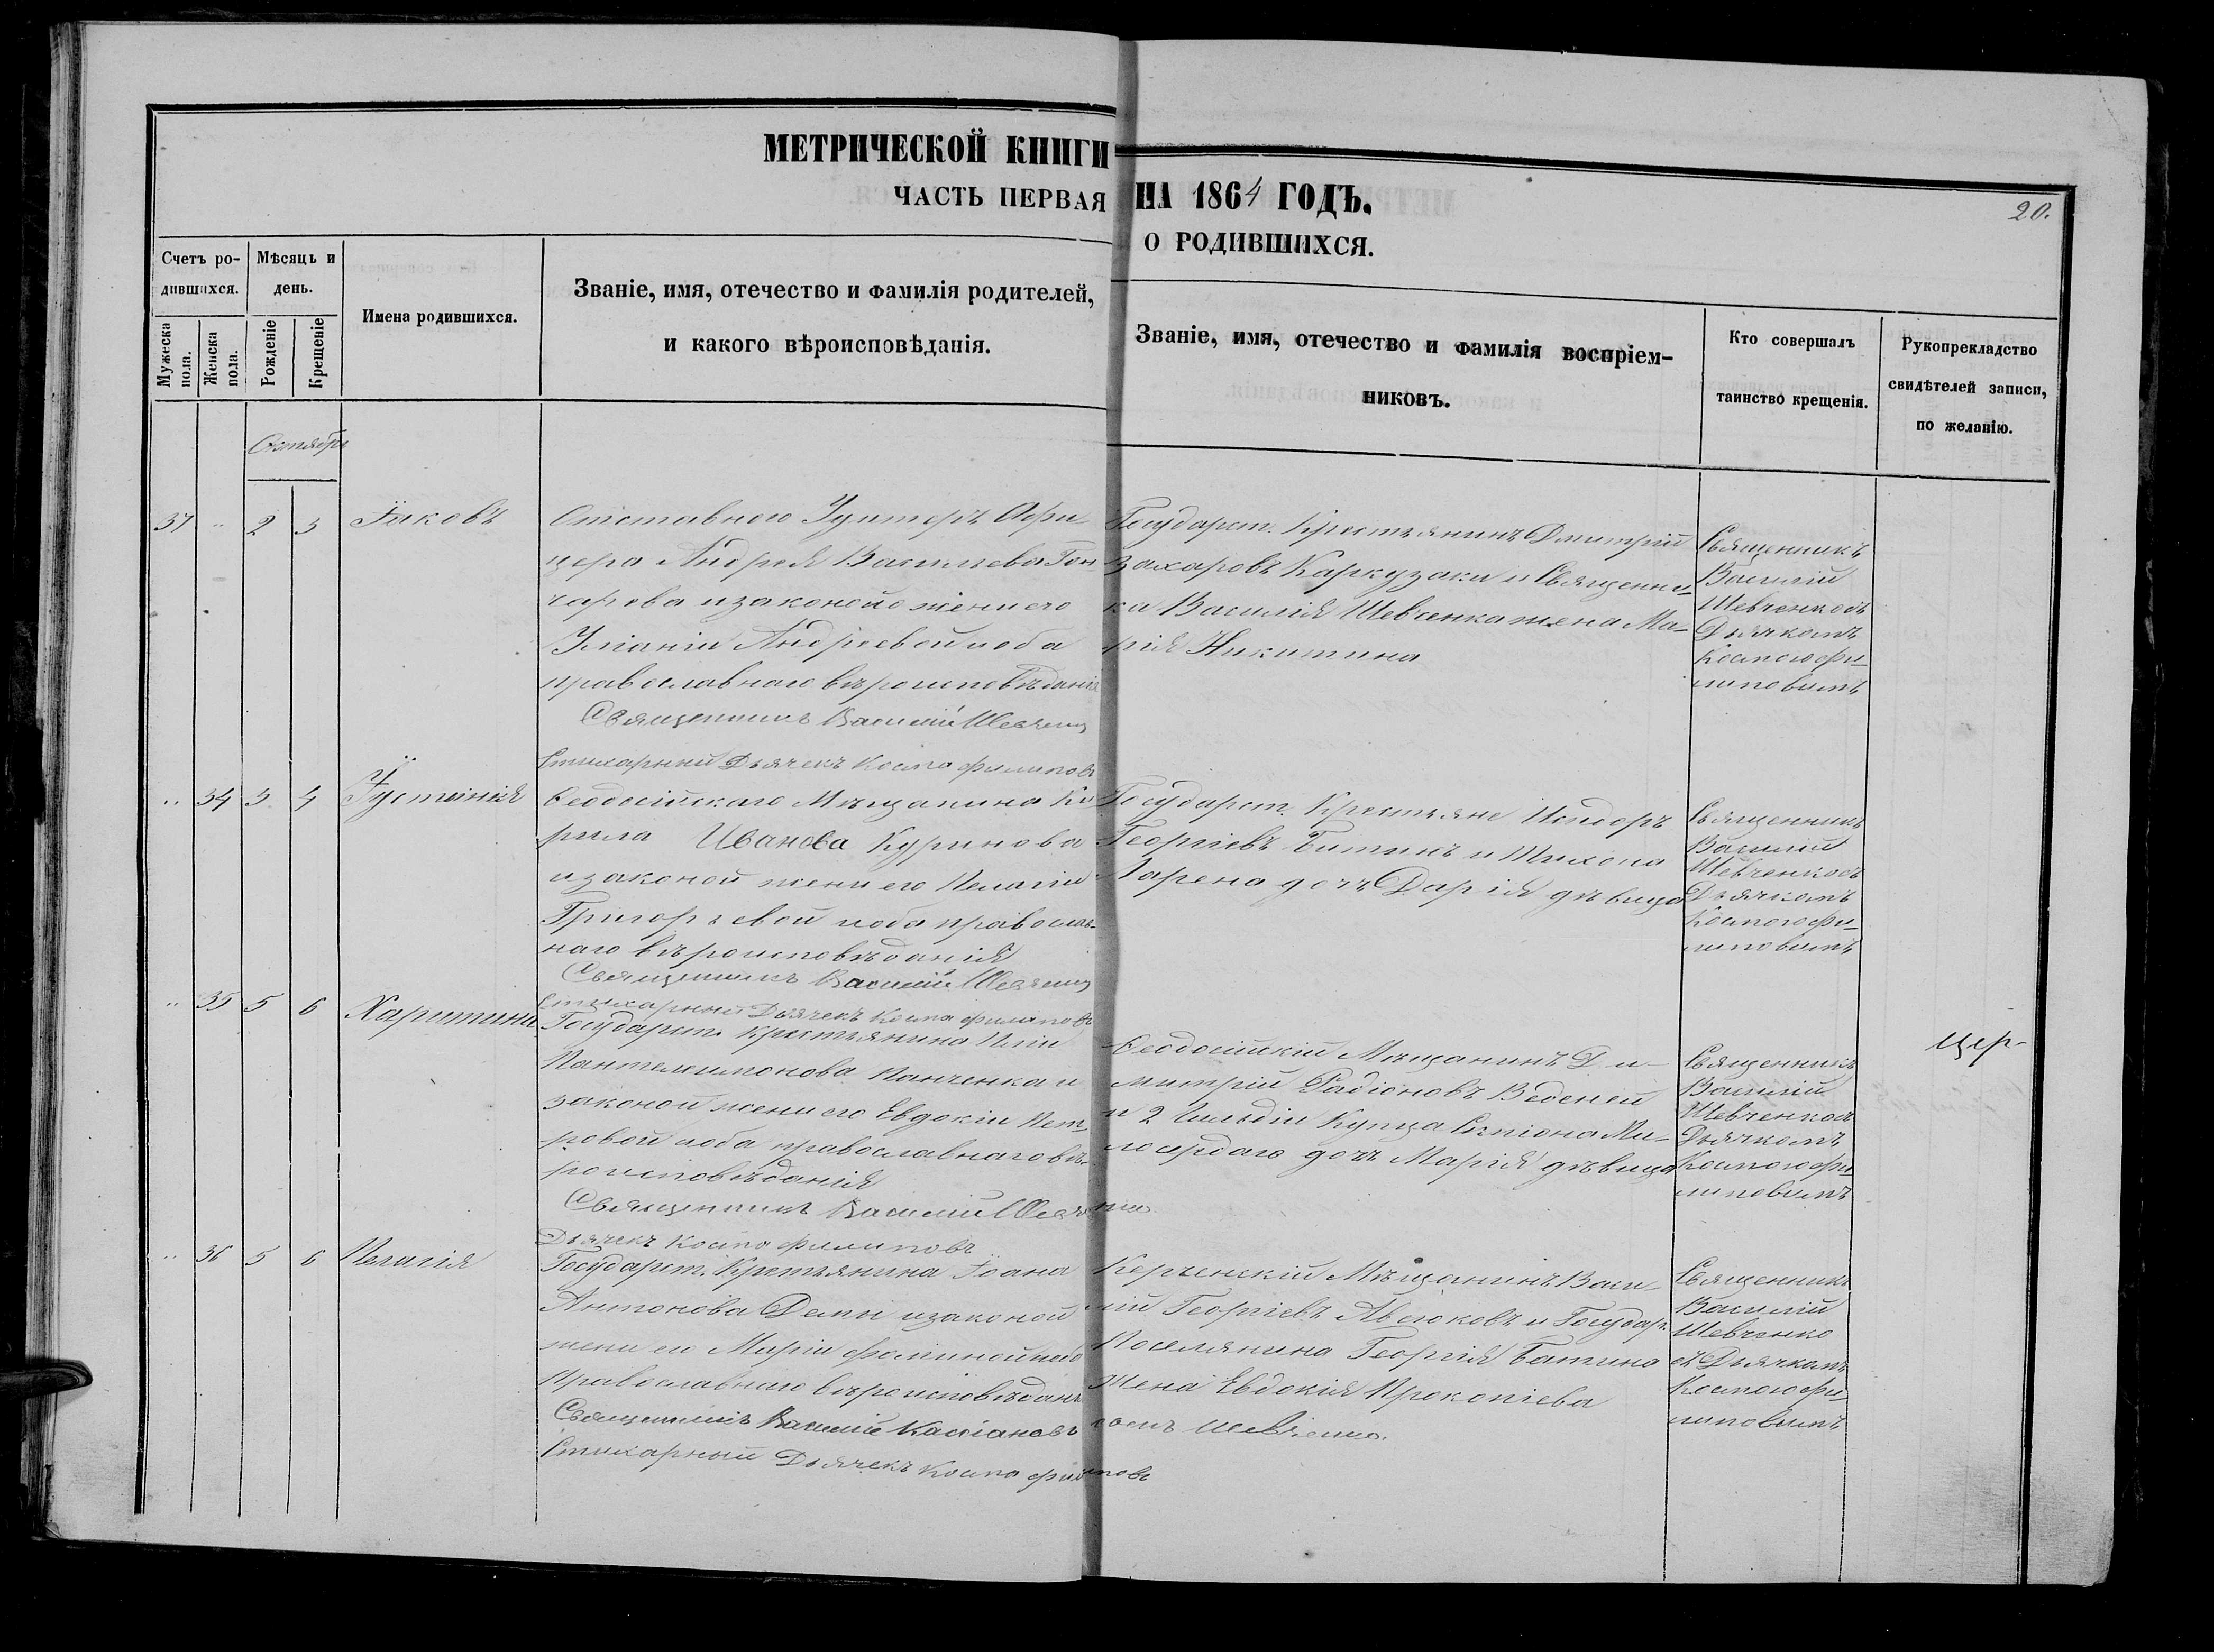 МЕТРИЧЕСКОЙ КНИГИ
НА 1864 ГОДЪ.
20.
ЧАСТЬ ПЕРВАЯ
О РОДИВШИХСЯ.
Счетъ ро-
дившихся.
Мѣсяць и
день.
Мужеска
пола.
Женска
пола.
Рожденіе
Крещеніе
Имена родившихся.
Званіе, имя, отечество и фамилія родителей,
и какого вѣроисповѣданія.
Званіе, имя, отечество и фамилія воспріем-
никовъ.
Кто совершалъ
таинство крещенія.
Рукопрекладство
свидѣтелей записи,
по желанію.
Октябрь
37 " 2 3 Іаковъ
Отставного Унтеръ Офи-
цера Андрея Васильева Гон-
чарова и законой жены его
Андреевой оба
православнаго вѣроисповѣданія
Священникъ Василій Шевченко
Стихарный Дьячекъ Косма Филиповъ
Государст. Крестьянинъ Дмитрій
Захаровъ Каркузаки и Священни-
ка Василія Шевченка жена Ма-
рія Никитина
Священникъ
Василій
Шевченко съ
Дьячкомъ
Космою Фи-
липовымъ
" 34 3 4 Іустинія
Феодосійскаго Мѣщанина Ки
рила Иванова Куринова
и законой жены его Пелагіи
Григорьевой оба православ-
наго вѣроисповѣданія
Священникъ Василій Шевченко
Стихарный Дьячекъ Косма Филиповъ
Государст. Крестьяне
Георгіевъ Батинъ и Тихона
Ларена дочь Дарія дѣвица
Священникъ
Василій
Шевченко съ
Дьячкомъ
Космою Фи-
липовымъ
" 35 5 6 Харитина
Государст. Крестьянина Иліи
Пантелеимонова Панченка и
законой жены его Евдокіи Пет-
ровой оба православнаго вѣ-
роисповѣданія
Священникъ Василій Шевченко
Дьячекъ Косма Филиповъ
Феодосійскій Мѣщанинъ Ди-
митрій Радіоновъ Веденей
и 2 Гильдіи Купца Ми-
лосердаго дочь Марія дѣвица
Священникъ
Василій
Шевченко съ
Дьячкомъ
Космою Фи-
липовымъ
цер-
" 36 5 6 Пелагія
Государст. Крестьянина Іоана
Антонова Демы и законой
жены его Маріи Фоминой оба
Православнаго вѣроисповѣдан.
Священникъ Василій Касіановъ сынъ Шевченко.
Стихарный Дьячекъ Косма Филиповъ
Керченскій Мѣщанинъ Васи-
лій Георгіевъ Авсюковъ и Государ.
Поселянина Георгія Батина
жена Евдокія Прокопіева
Священникъ
Василій
Шевченко
съ Дьячкомъ
Космою Фи-
липовымъ